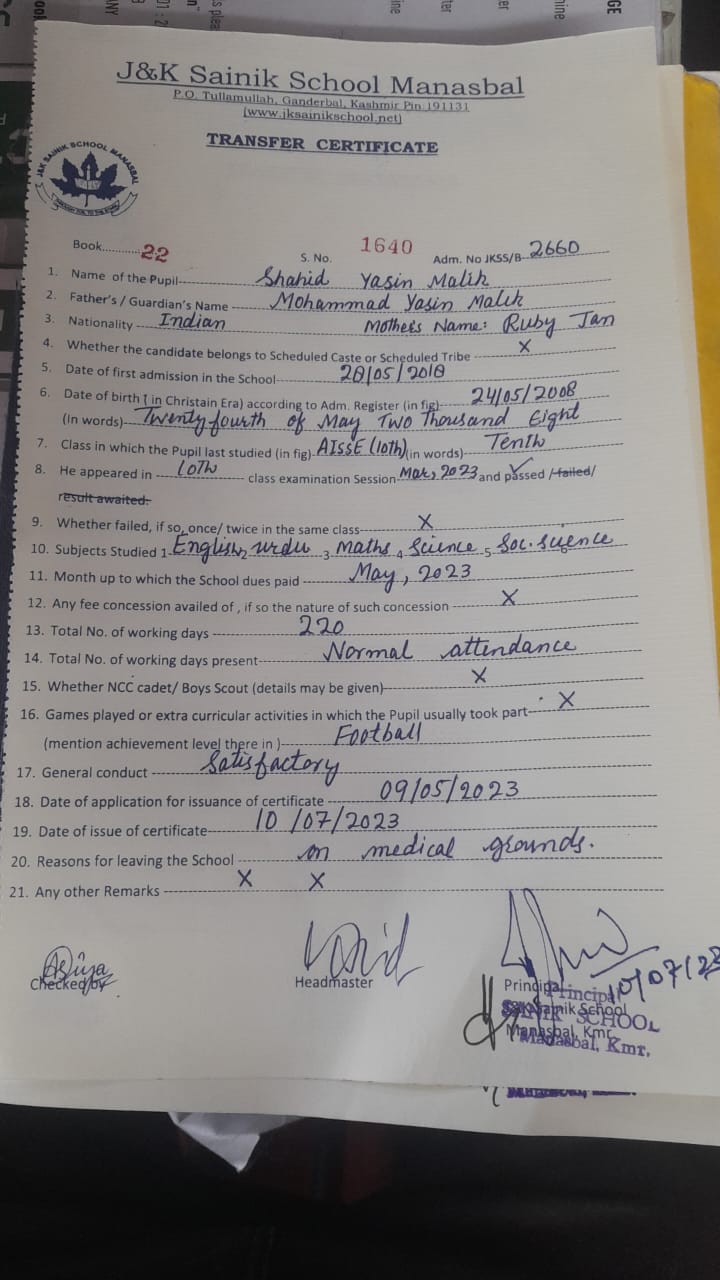 J&K Sainik School Manasbal
P.O. Tullamullah, Ganderbal, Kashmir Pin 191131
(www.jksainikschool.net)
TRANSFER CERTIFICATE
J&K SAINIK SCHOOL MANASBAL
Book.......... 22 S. No. 1640 Adm. No JKSS/B- 2660
1. Name of the Pupil- Shahid Yasin Malik
2. Father's / Guardian's Name - Mohammad Yasin Malik
3. Nationality - Indian Mothers Name: Ruby Jan
4. Whether the candidate belongs to Scheduled Caste or Scheduled Tribe - X
5. Date of first admission in the School- 28/05/2018
6. Date of birth ( in Christain Era) according to Adm. Register (in fig)- 24/05/2008
(In words)- Twenty fourth of May Two Thousand Eight
7. Class in which the Pupil last studied (in fig)- AISSE (10th) (in words)- Tenth
8. He appeared in - 10th class examination Session- Mar, 2023 and passed /failed/
result awaited.
9. Whether failed, if so, once/ twice in the same class- X
10. Subjects Studied 1 English 2 urdu 3 Maths 4 Science 5 Soc. science 6
11. Month up to which the School dues paid - May, 2023
12. Any fee concession availed of , if so the nature of such concession - X
13. Total No. of working days - 220
14. Total No. of working days present- Normal attendance
15. Whether NCC cadet/ Boys Scout (details may be given)- X
16. Games played or extra curricular activities in which the Pupil usually took part- X
(mention achievement level there in )- Football
17. General conduct - Satisfactory
18. Date of application for issuance of certificate - 09/05/2023
19. Date of issue of certificate- 10/07/2023
20. Reasons for leaving the School - on medical grounds.
21. Any other Remarks - X X
Asiya
Checked by Headmaster Principal 10/07/23
Sainik School
Manasbal, Kmr.
Principal
SAINIK SCHOOL
Manasbal, Kmr.